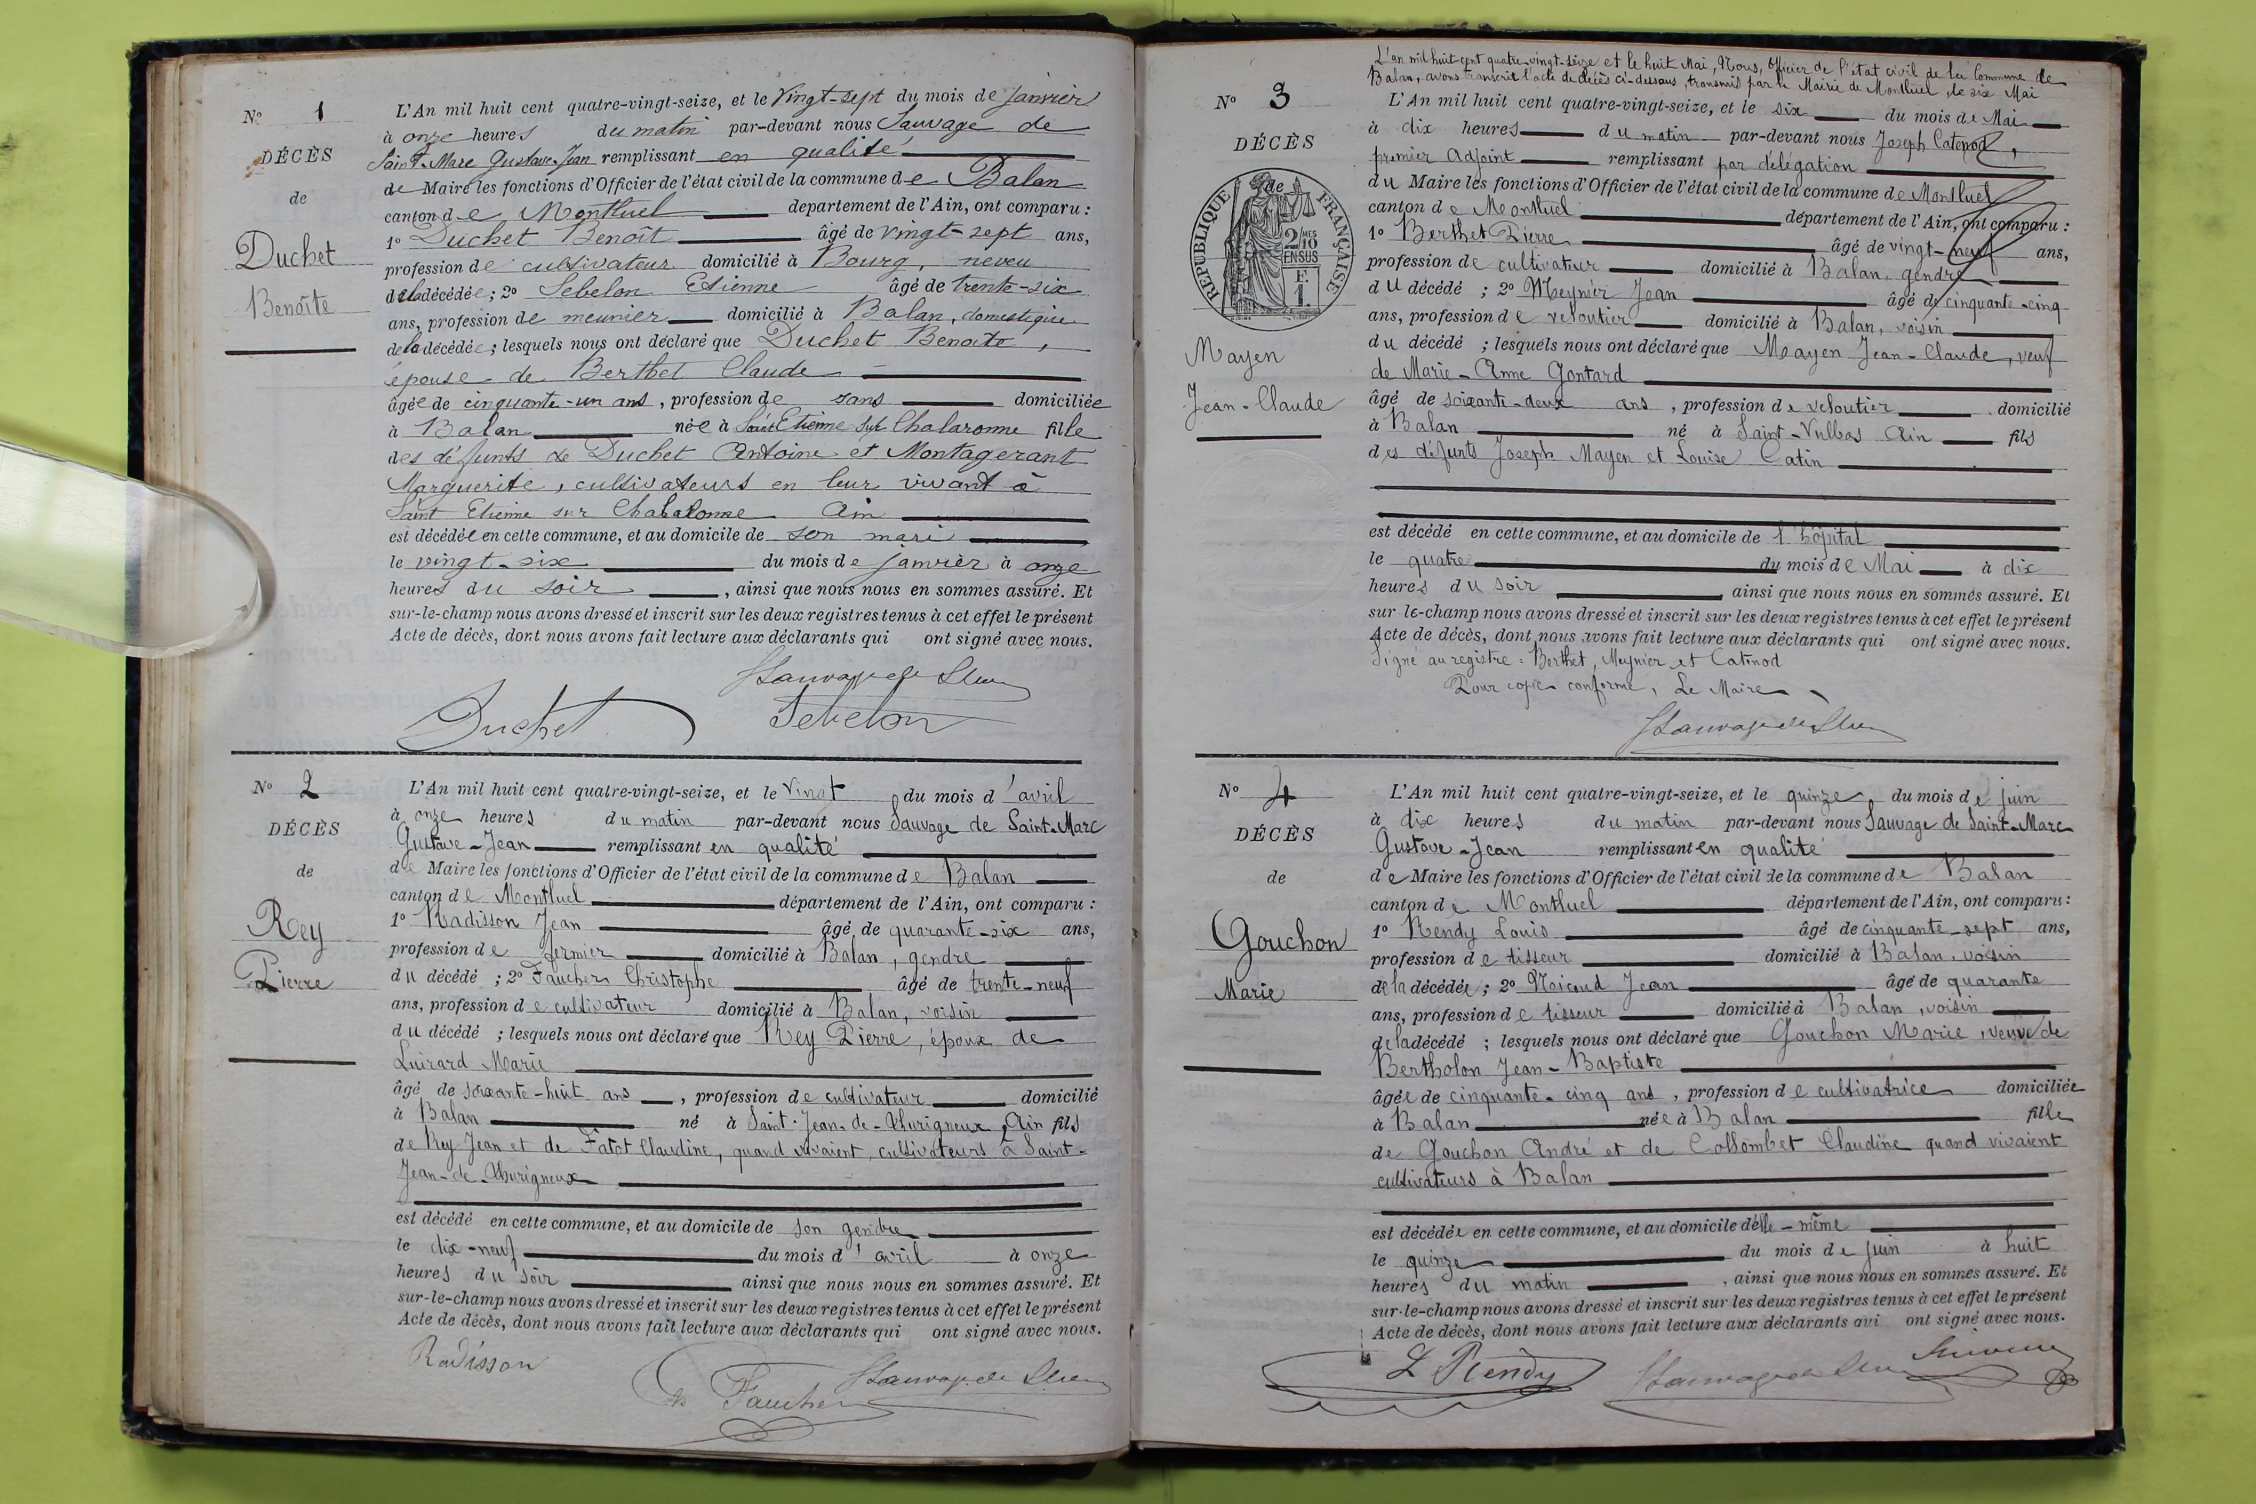 N° 1
DÉCÈS
de
Duchet
Benoîte
L'An mil huit cent quatre-vingt-seize, et le Vingt-sept du mois de janvier
à onze heures du matin par-devant nous Sauvage de
Saint-Marc Gustave-Jean remplissant en qualité
de Maire les fonctions d'Officier de l'état civil de la commune de Balan
canton de Montluel département de l'Ain, ont comparu :
1° Duchet Benoît âgé de vingt-sept ans,
profession de cultivateur domicilié à Bourg, neveu
de la décédée ; 2° Sebelon Etienne âgé de trente-six
ans, profession de meunier domicilié à Balan, domestique
de la décédée ; lesquels nous ont déclaré que Duchet Benoîte,
épouse de Berthet Claude
âgée de cinquante-un ans, profession de sans domiciliée
à Balan née à Saint Etienne sur Chalaronne fille
des défunts de Duchet Antoine et Montagerant
Marguerite, cultivateurs en leur vivant à
Saint Etienne sur Chalaronne Ain
est décédée en cette commune, et au domicile de son mari
le vingt-six du mois de janvier à onze
heures du soir, ainsi que nous nous en sommes assuré. Et
sur-le-champ nous avons dressé et inscrit sur les deux registres tenus à cet effet le présent
Acte de décès, dont nous avons fait lecture aux déclarants qui ont signé avec nous.
Duchet Sebelon
N° 2
DÉCÈS
de
Rey
Pierre
L'An mil huit cent quatre-vingt-seize, et le Vingt du mois d'avril
à onze heures du matin par-devant nous Sauvage de Saint-Marc
Gustave-Jean remplissant en qualité
de Maire les fonctions d'Officier de l'état civil de la commune de Balan
canton de Montluel département de l'Ain, ont comparu :
1° Radisson Jean âgé de quarante-six ans,
profession de fermier domicilié à Balan, gendre
du décédé ; 2° Faucher Christophe âgé de trente-neuf
ans, profession de cultivateur domicilié à Balan, voisin
du décédé ; lesquels nous ont déclaré que Rey Pierre, époux de
Luirard Marie
âgé de soixante-huit ans, profession de cultivateur domicilié
à Balan né à Saint-Jean-de-Thurigneux, Ain fils
de Rey Jean et de Fatot Claudine, quand vivaient, cultivateurs à Saint-
Jean-de-Thurigneux
est décédé en cette commune, et au domicile de son gendre
le dix-neuf du mois d'avril à onze
heures du soir ainsi que nous nous en sommes assuré. Et
sur-le-champ nous avons dressé et inscrit sur les deux registres tenus à cet effet le présent
Acte de décès, dont nous avons fait lecture aux déclarants qui ont signé avec nous.
Radisson
Faucher
L'an mil huit cent quatre-vingt-seize et le huit Mai, Nous, Officier de l'état civil de la Commune de
Balan, avons transcrit l'acte de décès ci-dessous, transmis par la Mairie de Montluel, le six Mai
N° 3
DÉCÈS
de
RÉPUBLIQUE FRANÇAISE
2/10 MES
EN SUS
F.
1.
Mayen
Jean-Claude
L'An mil huit cent quatre-vingt-seize, et le six du mois de Mai
à dix heures du matin par-devant nous Joseph Catenod,
premier Adjoint remplissant par délégation
du Maire les fonctions d'Officier de l'état civil de la commune de Montluel
canton de Montluel département de l'Ain, ont comparu :
1° Berthet Pierre âgé de vingt-neuf ans,
profession de cultivateur domicilié à Balan, gendre
du décédé ; 2° Meynier Jean âgé de cinquante-cinq
ans, profession de veloutier domicilié à Balan, voisin
du décédé ; lesquels nous ont déclaré que Mayen Jean-Claude, veuf
de Marie-Anne Gontard
âgé de soixante-deux ans, profession de veloutier domicilié
à Balan né à Saint-Vulbas Ain fils
des défunts Joseph Mayen et Louise Catin
est décédé en cette commune, et au domicile de l'hôpital
le quatre du mois de Mai à dix
heures du soir ainsi que nous nous en sommes assuré. Et
sur le-champ nous avons dressé et inscrit sur les deux registres tenus à cet effet le présent
Acte de décès, dont nous avons fait lecture aux déclarants qui ont signé avec nous.
Signé au registre : Berthet, Meynier et Catenod
Pour copie conforme, Le Maire
N° 4
DÉCÈS
de
Gouchon
Marie
L'An mil huit cent quatre-vingt-seize, et le quinze du mois de juin
à dix heures du matin par-devant nous Sauvage de Saint-Marc
Gustave-Jean remplissant en qualité
de Maire les fonctions d'Officier de l'état civil de la commune de Balan
canton de Montluel département de l'Ain, ont comparu :
1° Rendy Louis âgé de cinquante-sept ans,
profession de tisseur domicilié à Balan, voisin
de la décédée ; 2° Jean âgé de quarante
ans, profession de tisseur domicilié à Balan, voisin
de la décédé ; lesquels nous ont déclaré que Gouchon Marie, veuve de
Bertholon Jean-Baptiste
âgée de cinquante-cinq ans, profession de cultivatrice domiciliée
à Balan née à Balan fille
de Gouchon André et de Collombet Claudine quand vivaient
cultivateurs à Balan
est décédée en cette commune, et au domicile d'elle-même
le quinze du mois de juin à huit
heures du matin, ainsi que nous nous en sommes assuré. Et
sur-le-champ nous avons dressé et inscrit sur les deux registres tenus à cet effet le présent
Acte de décès, dont nous avons fait lecture aux déclarants qui ont signé avec nous.
L Rendy